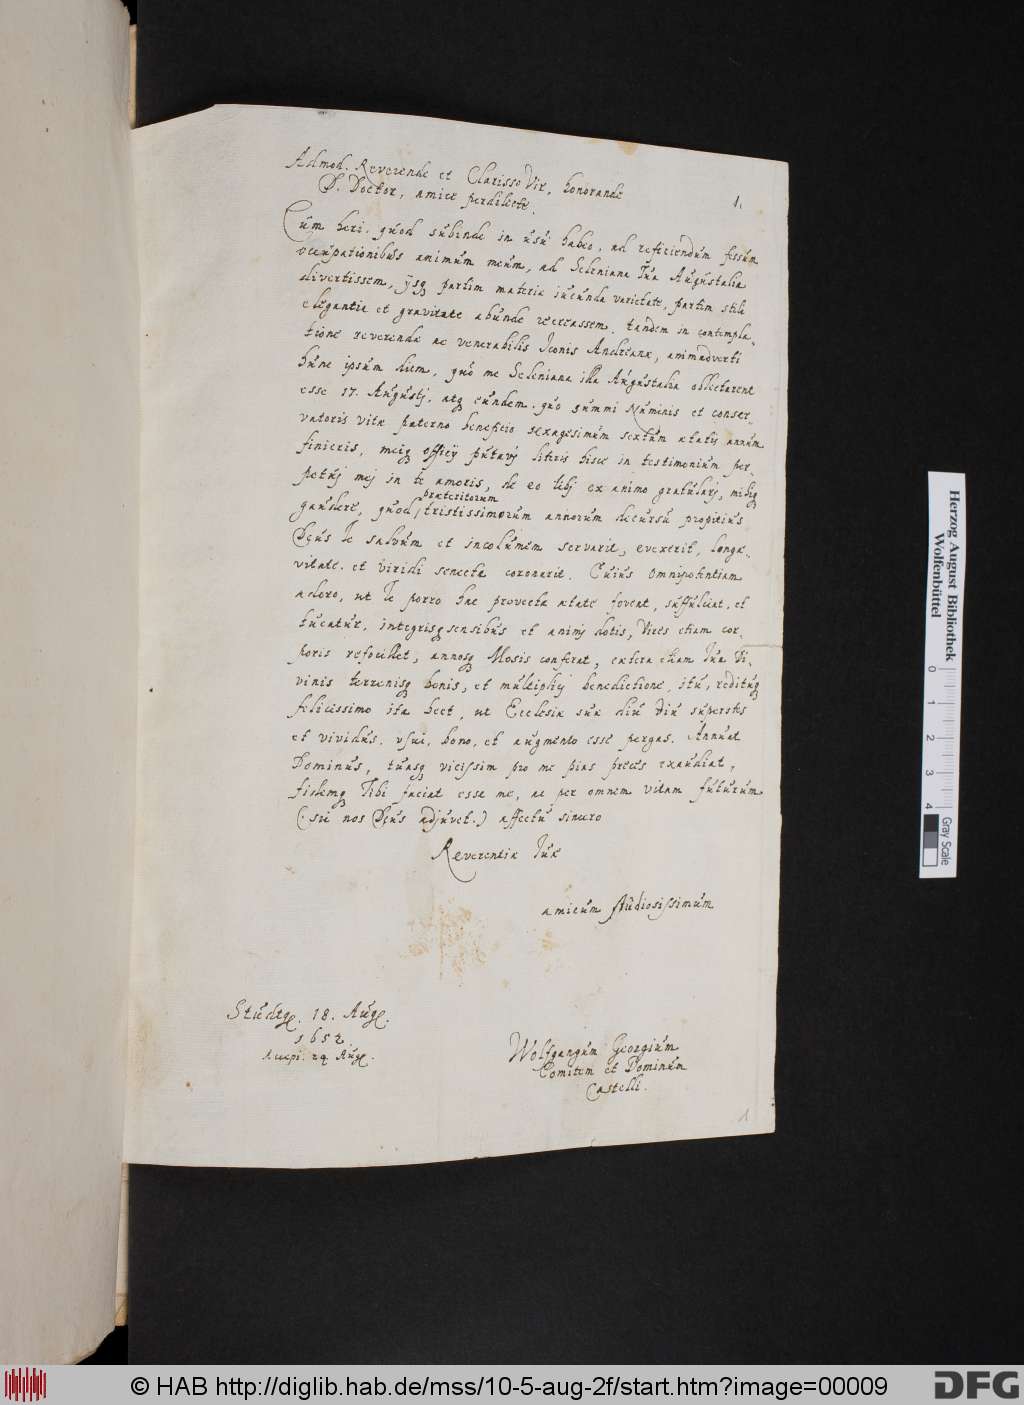 Admod. Reverende et Clarisso Vir, honorande
D. Doctor, amice perdilecte.
1.
Cùm heri, quod subinde in usu habeo, ad reficiendum fessum
occupationibus animum meum, ad Seleniana Tua Augustalia
divertissem, ijsq partim materiæ iucunda varietate, partim stili
elegantia et gravitate abunde recreassem, tandem in contempla-
tione reverendæ ac venerabilis Iconis Andreanæ, animadverti
hunc ipsum diem, quo me Seleniana illa Augustalia oblectarent
esse 17. Augusti, atq eundem, quo summi Numinis et conser-
vatoris vitæ paterno beneficio sexagesimum sextum ætatis annum
finieris, meiq officij putavj literis hisce in testimonium per-
petuj mej in te amoris, de eo tibj ex animo gratularj, mihiq
gaudere, quod praeteritorum tristissimorum annorum decursu propitius
Deus te salvum et incolumem servarit, evexerit, longæ-
vitate et viridi senecta coronarit. Cuius omnipotentiam
adoro, ut Te porro hac provecta ætate foveat, suffulciat, et
tueatur, integrisq sensibus et animj dotis, vires etiam cor-
poris refocillet, annosq Mosis conferat, cætera etiam Tua Di-
vinis terrenisq bonis, et multiplicj benedictione, itu, redituq
felicissimo ita beet, ut Ecclesiæ suæ diu diu superstes
et vividus, usui, bono, et augmento esse pergas. Annuat
Dominus, tuasq vicissim pro me pias preces exaudiat,
fidemq Tibi faciat esse me, ac per omnem vitam futurum
(: sic nos Deus adjuvet :) affectu sincero
Reverentiæ Tuæ
amicum studiosissimum
Studtg. 18. Aug.
1652
Accepi. 29. Aug.
Wolfgangum Georgium
Comitem et Dominum
Castelli.
1
Herzog August Bibliothek
Wolfenbüttel
0 1 2 3 4
Gray Scale
© HAB http://diglib.hab.de/mss/10-5-aug-2f/start.htm?image=00009
DFG